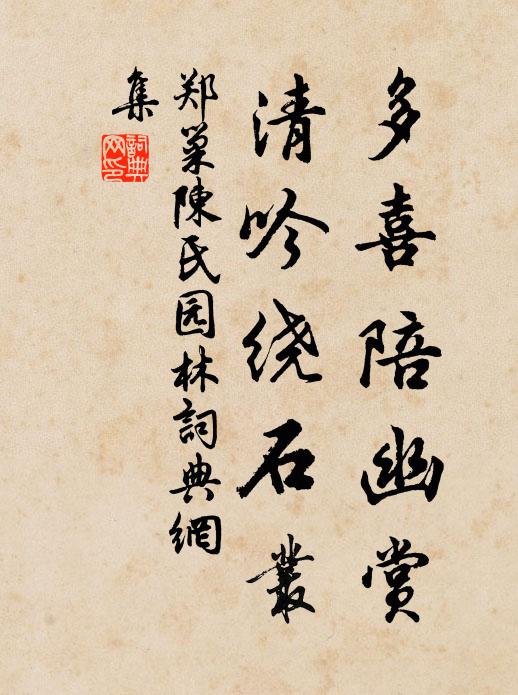 多喜陪幽赏
清吟绕石叢
郑巢陳氏园林詞典網
集
詞典网印